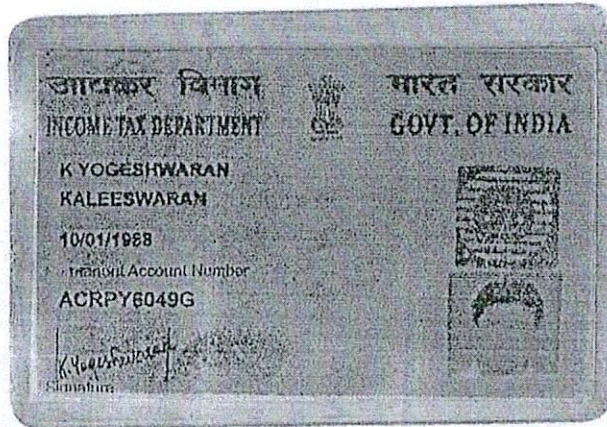 आयकर विभाग
INCOME TAX DEPARTMENT
भारत सरकार
GOVT. OF INDIA
K YOGESHWARAN
KALEESWARAN
10/01/1988
Account Number
ACRPY6049G
K. Yogeshwaran
Signature